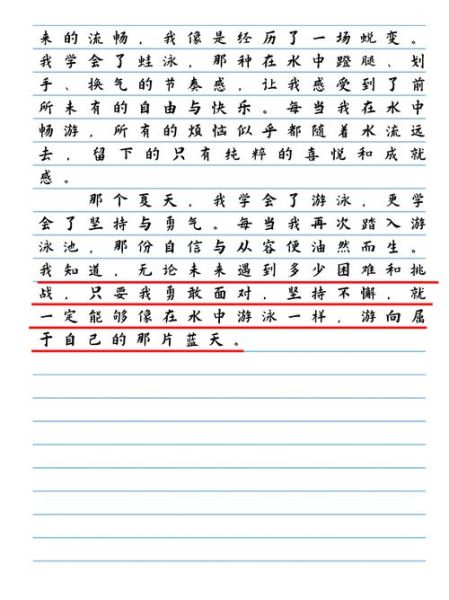 来的流畅，我像是经历了一场蜕变。
我学会了蛙泳，那种在水中蹬腿、划
手、换气的节奏感，让我感受到了前
所未有的自由与快乐。每当我在水中
畅游，所有的烦恼似乎都随着水流远
去，留下的只有纯粹的喜悦和成就
感。
那个夏天，我学会了游泳，更学
会了坚持与勇气。每当我再次踏入游
泳池，那份自信与从容便油然而生。
我知道，无论未来遇到多少困难和挑
战，只要我勇敢面对，坚持不懈，就
一定能够像在水中游泳一样，游向属
于自己的那片蓝天。